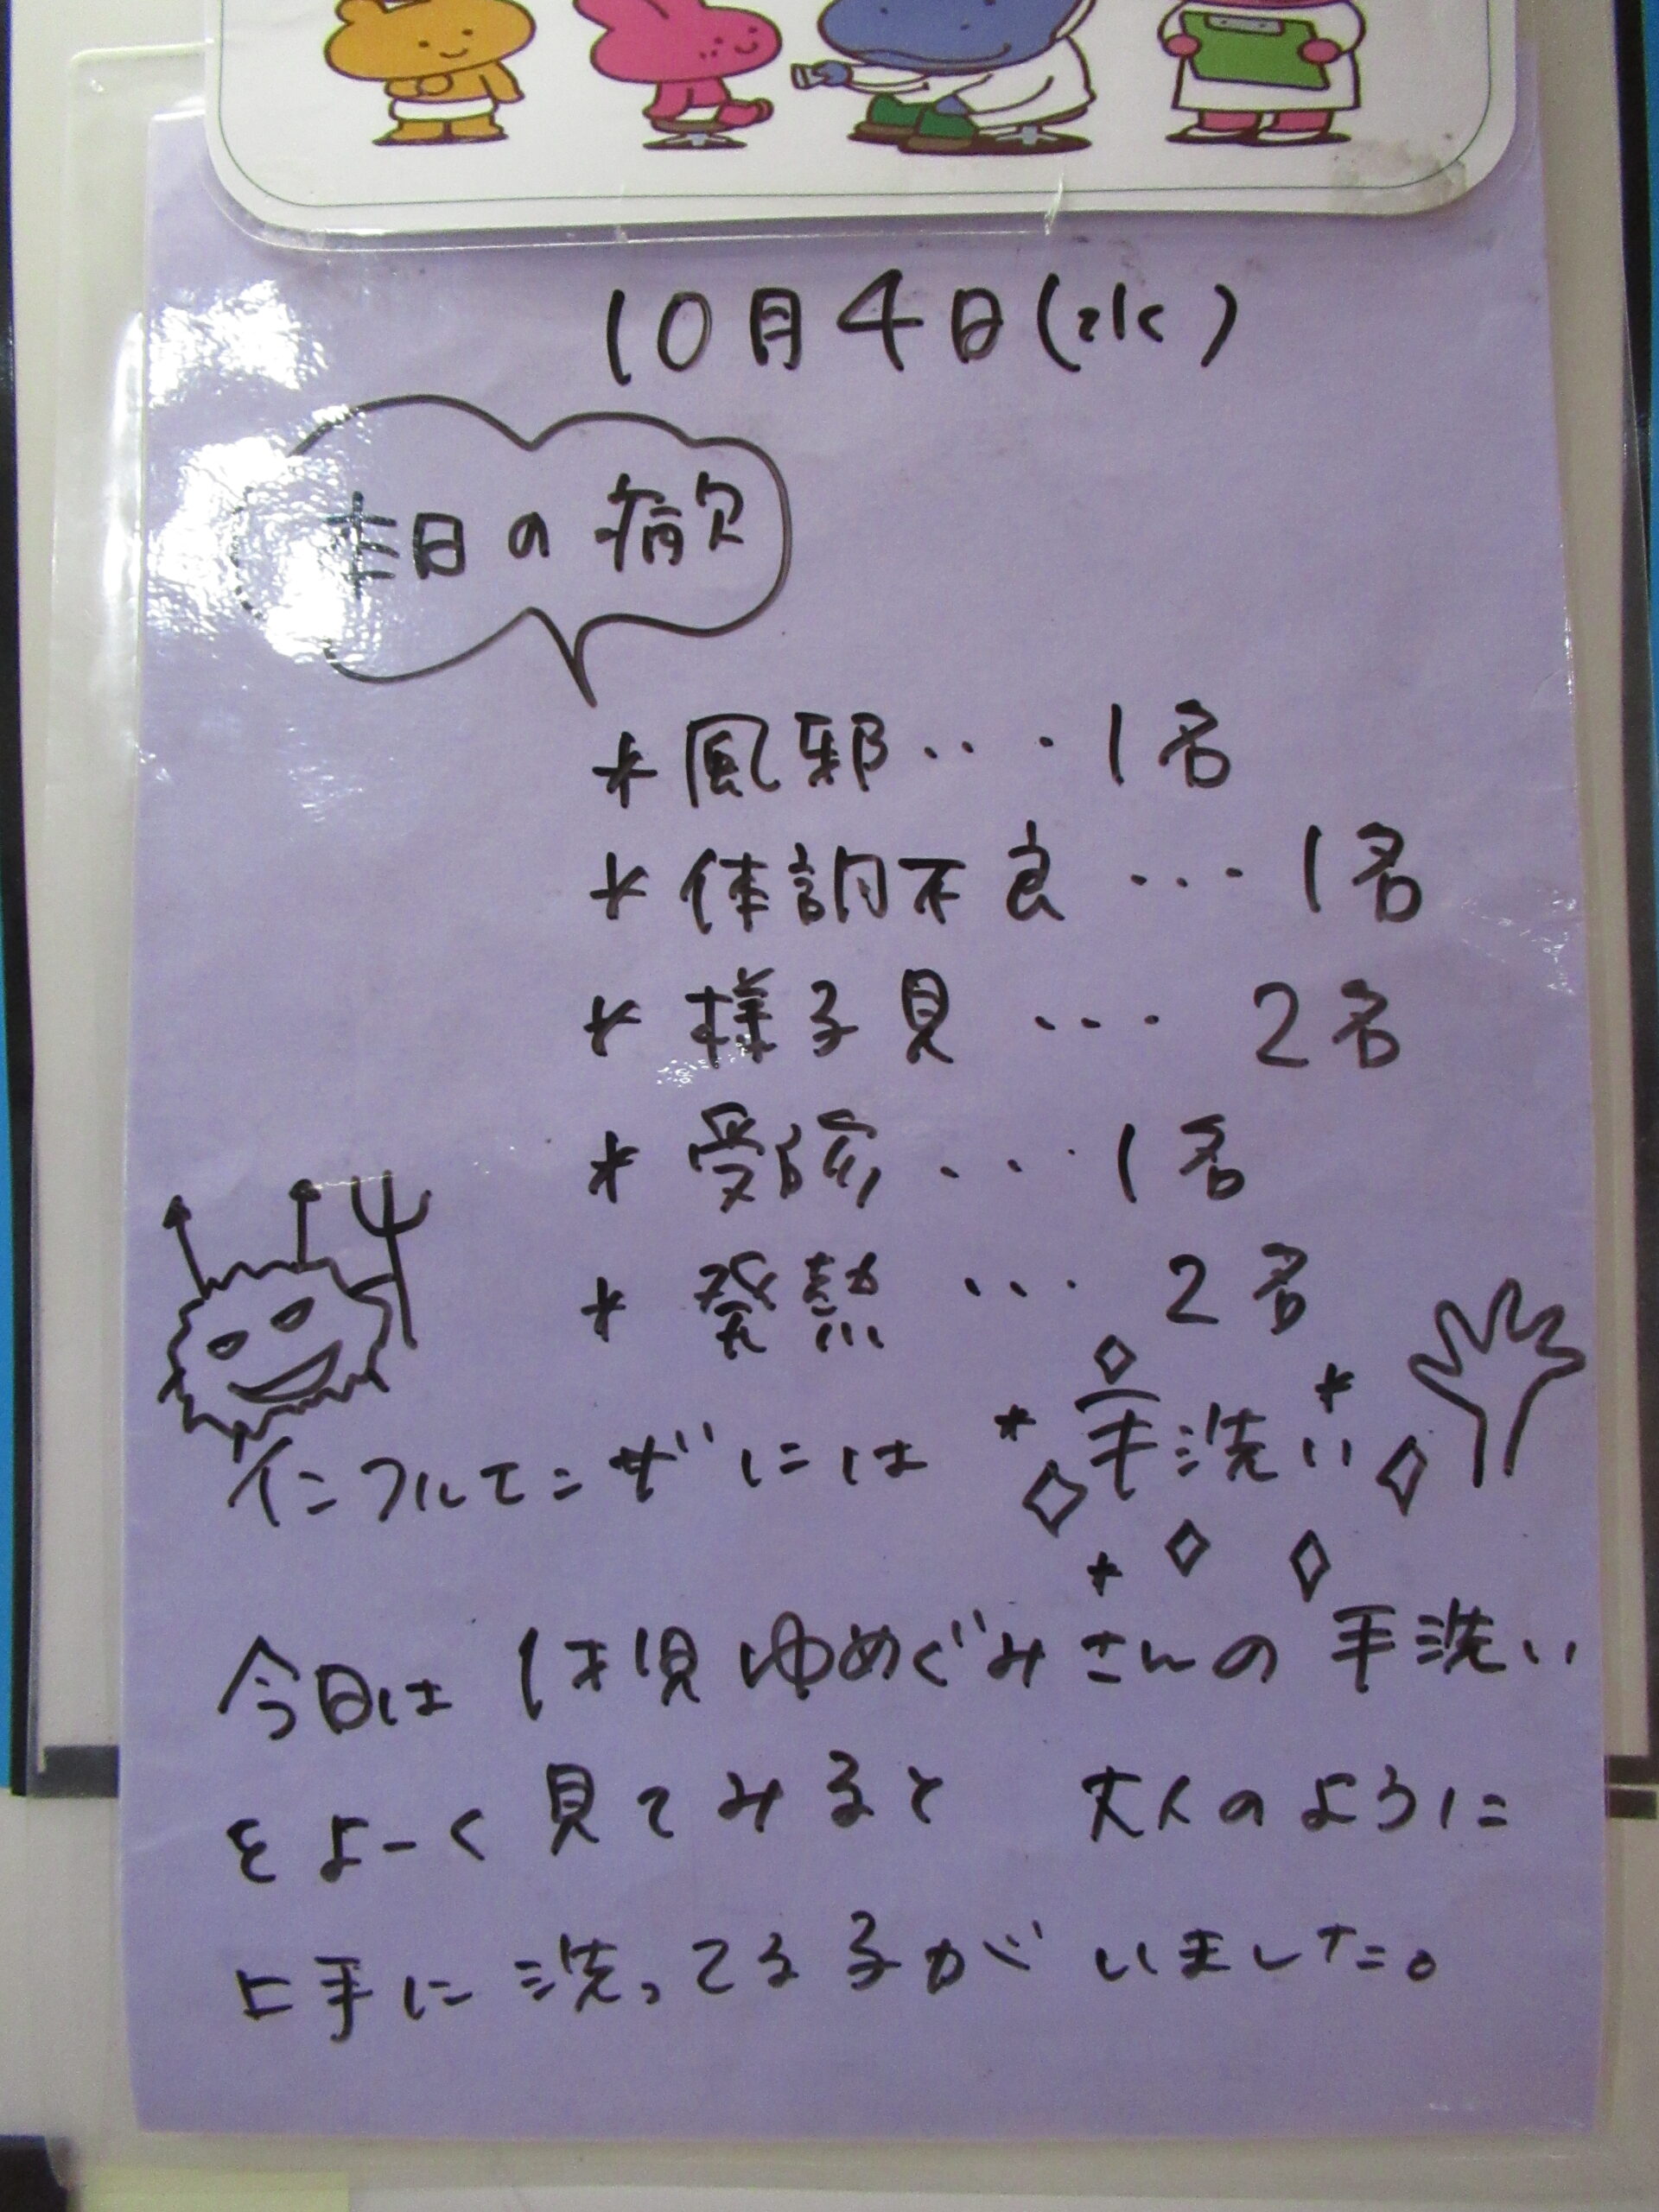 10月4日(水)
本日の病欠
* 風邪・・・・1名
* 体調不良・・・1名
* 様子見・・・2名
* 受診・・・・1名
* 発熱・・・2名
インフルエンザには 手洗い
今日は 1才児ゆめぐみさんの手洗い
をよーく見てみると 大人のように
上手に洗ってる子がいました。